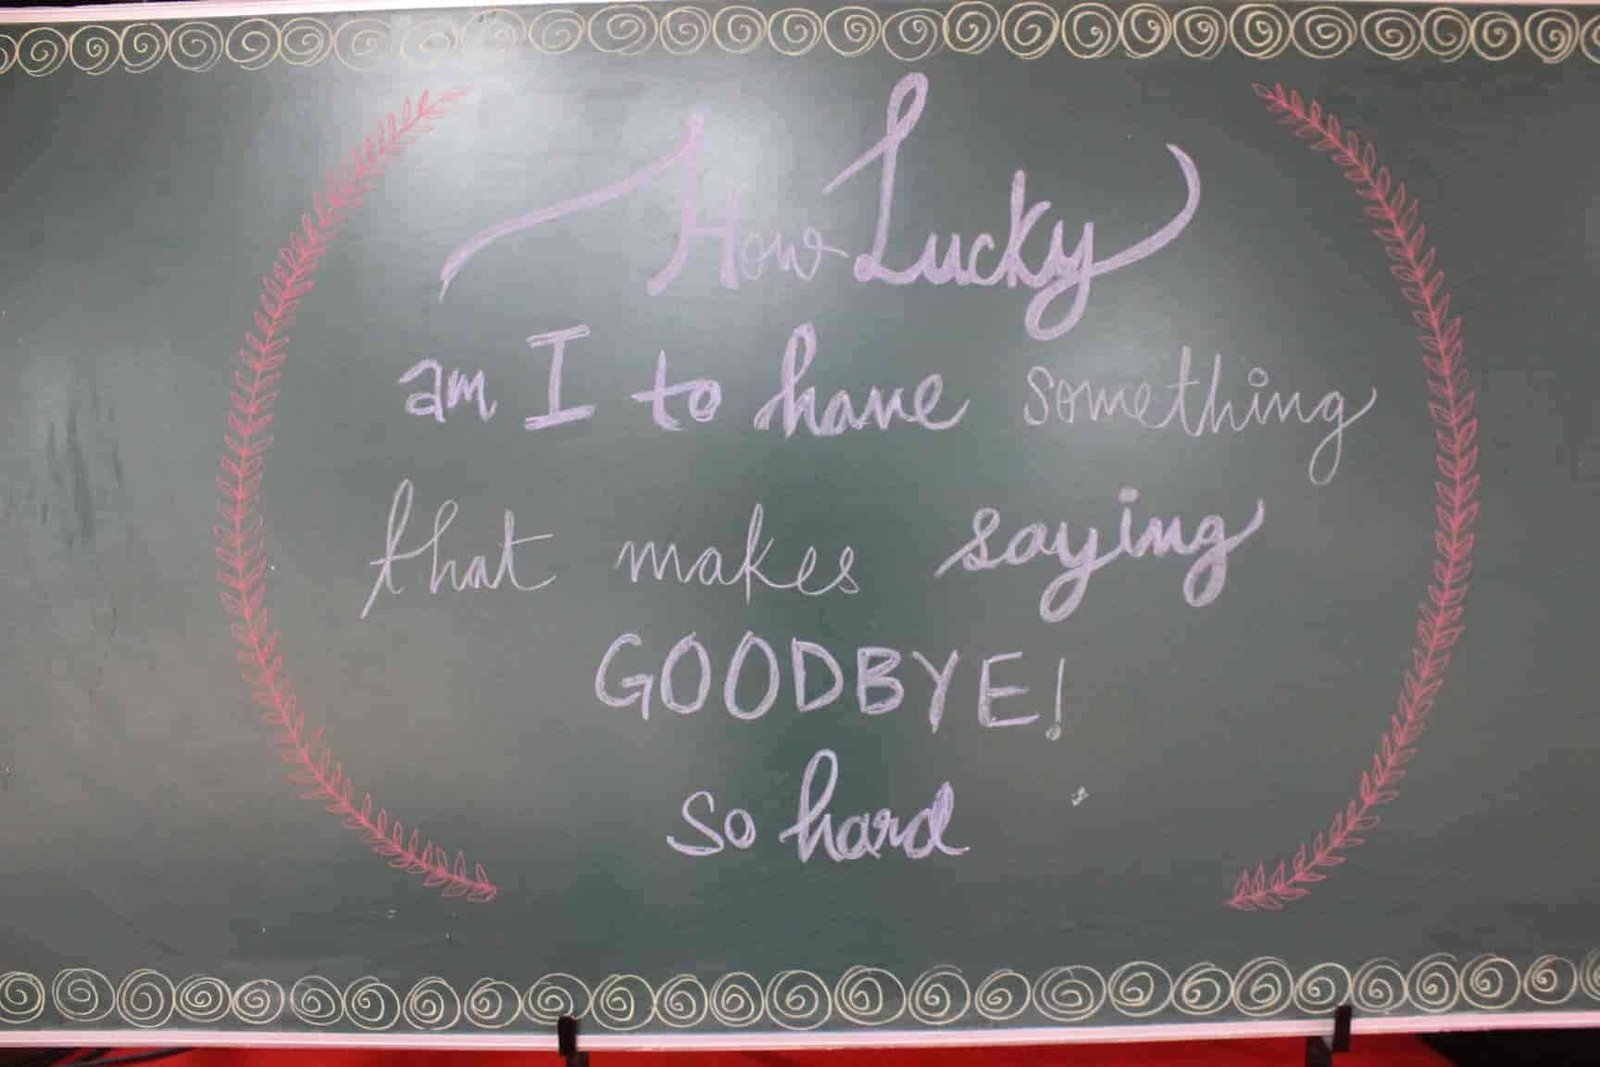 How Lucky
am I to have something
that makes saying
GOODBYE!
so hard